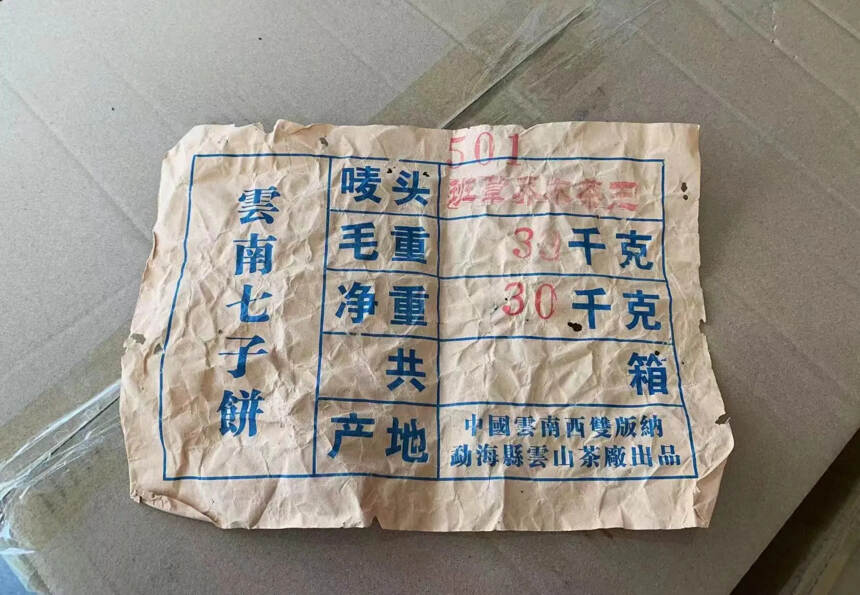 雲南七子餅
501
唛头 班章
毛重 千克
净重 30千克
共 箱
产地 中國雲南西雙版納
勐海縣雲山茶廠出品